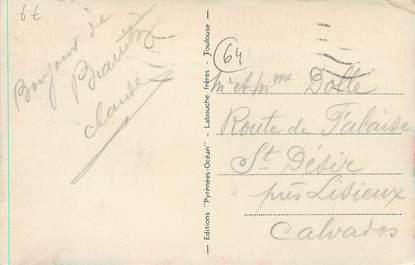 6€
Bonjour de
Biarritz
Claude
Editions "Pyrénées-Océan" - Labouche frères - Toulouse
64
Mr et Mme Dolle
Route de Falaise
St Désir
près Lisieux
Calvados